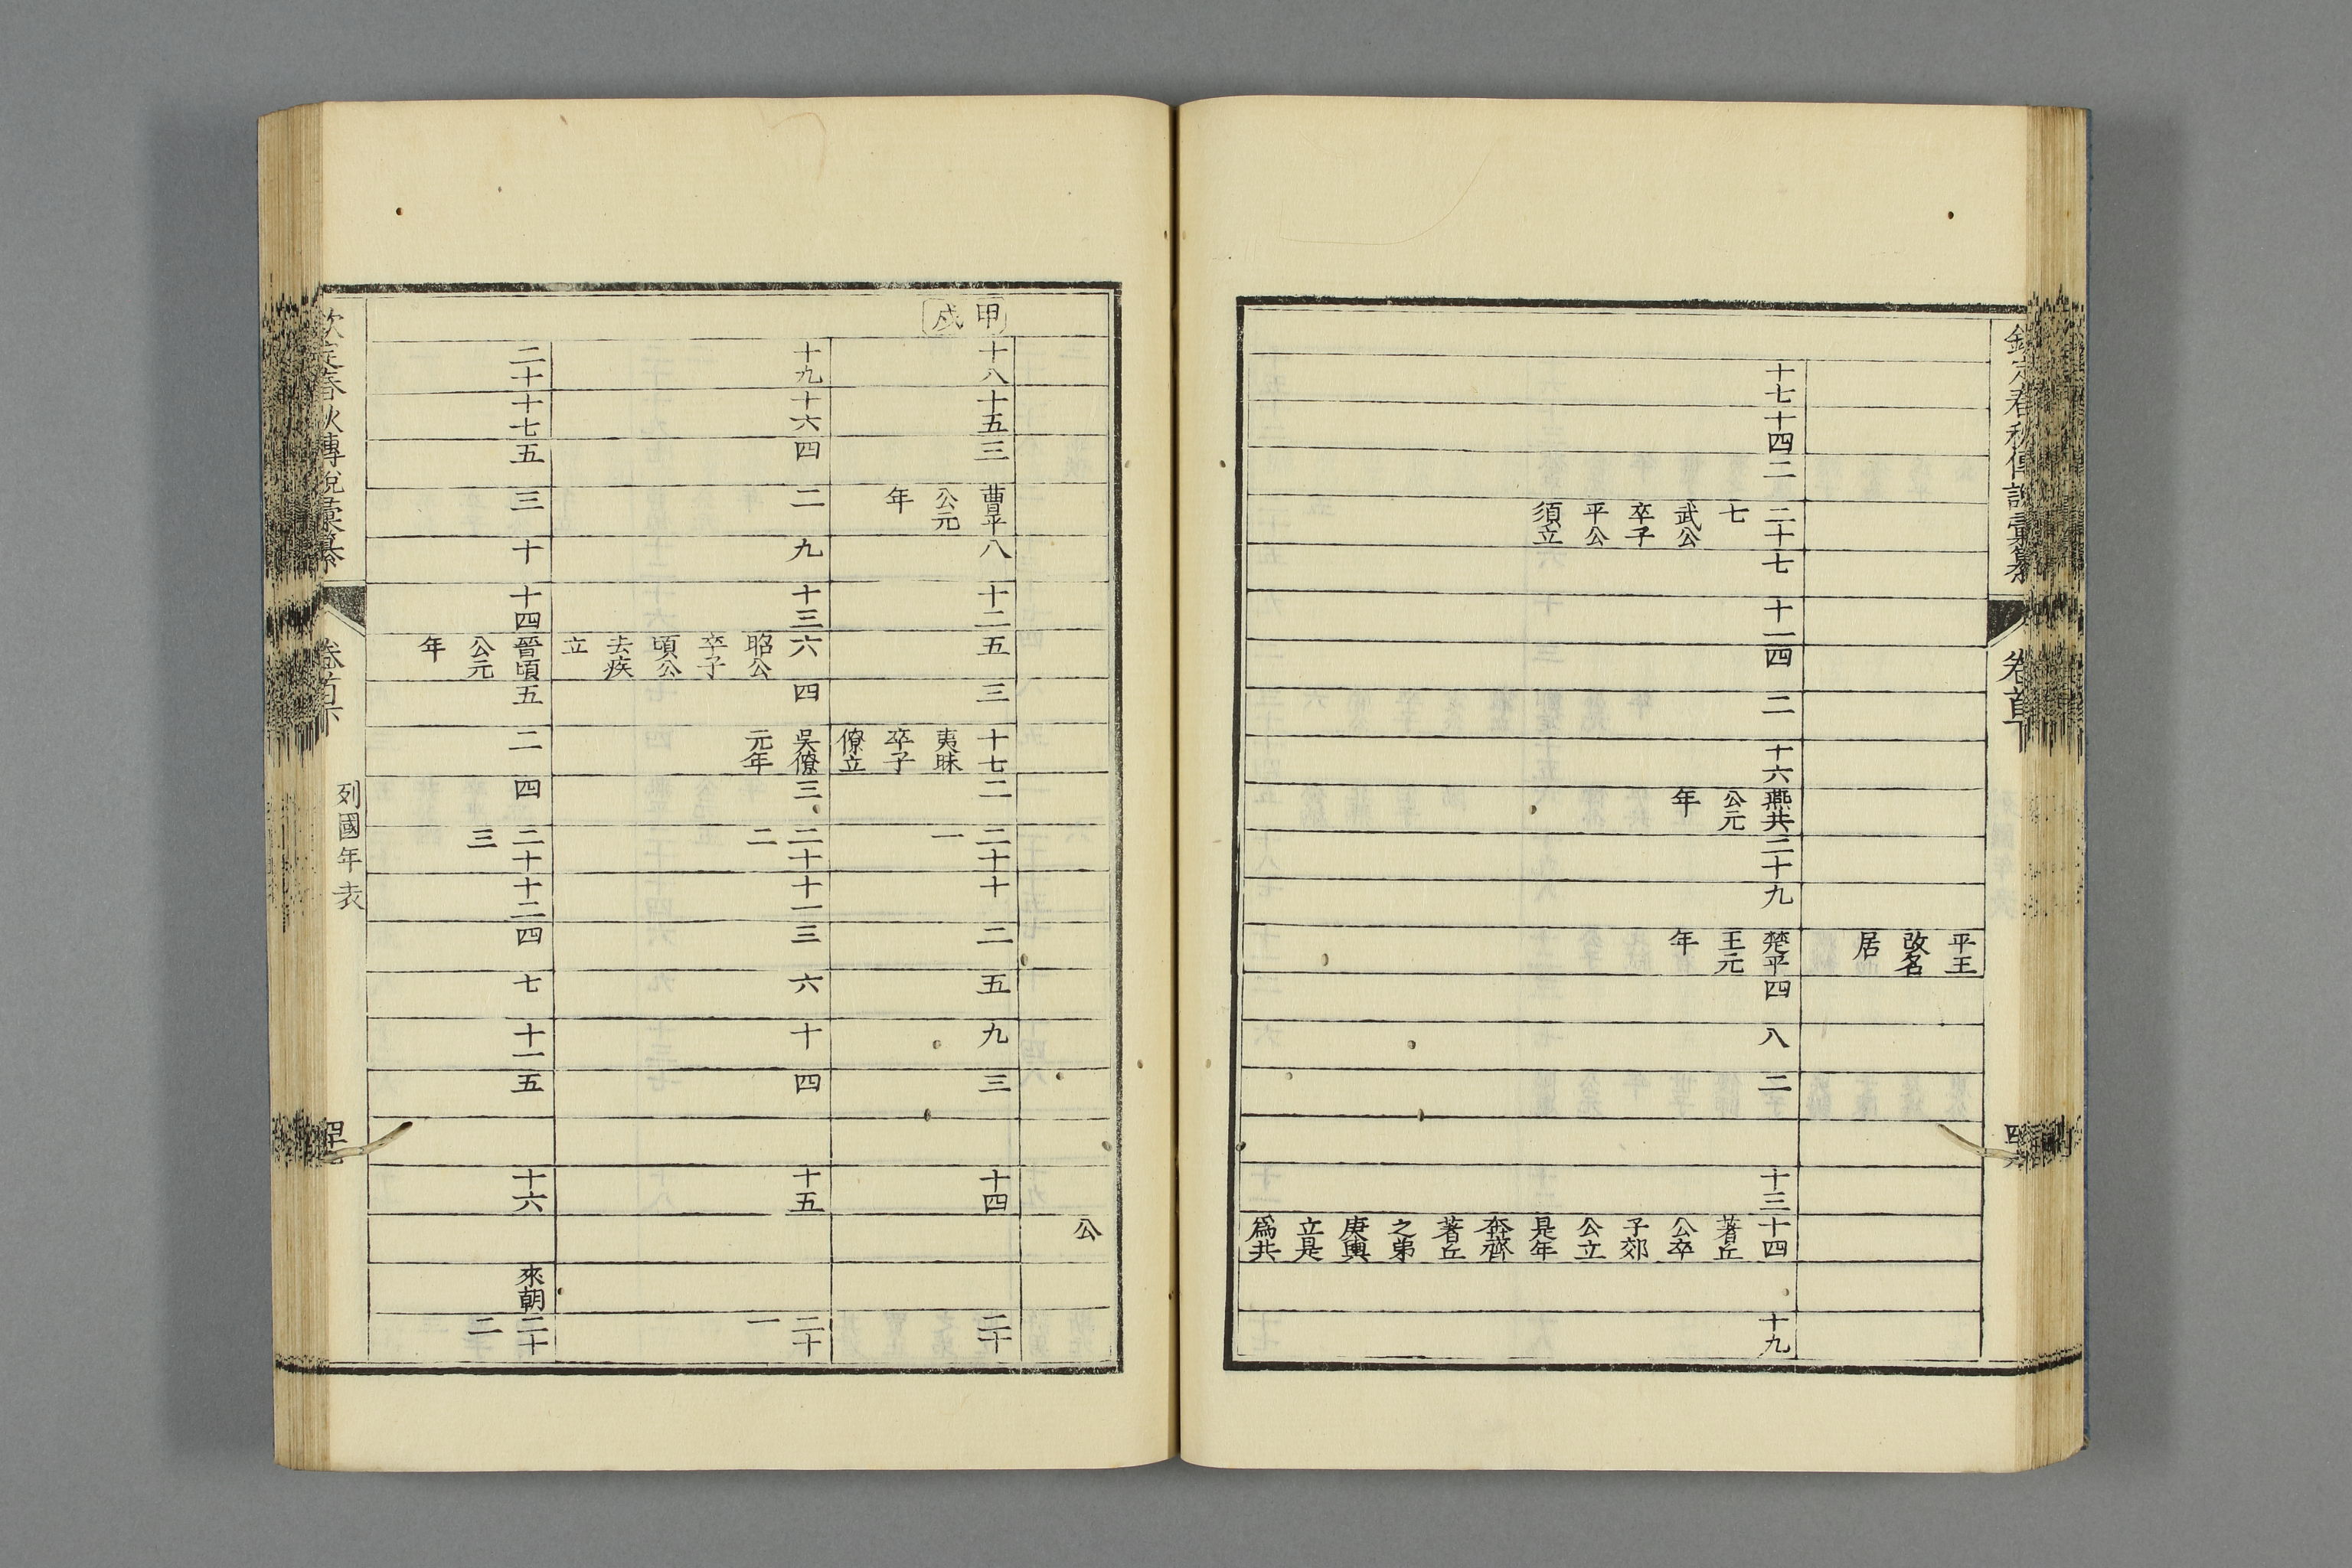 欽定春秋傳說彙纂
卷首下
平王
改名
居
十七
十四
二
二十
七
武公
卒子
平公
須立
七
十一
四
二
十六
燕共
公元
年
二十
九
楚平
王元
年
四
八
二
十三
十四
著丘
公卒
子郊
公立
是年
奔齊
著丘
之弟
庚輿
立是
爲共
十九
公
甲
戌
十八
十五
三
曹平
公元
年
八
十二
五
三
十七
夷昧
卒子
僚立
二
二十
一
十
二
五
九
三
十四
二十
十九
十六
四
二
九
十三
六
昭公
卒子
頃公
去疾
立
四
吳僚
元年
三
二十
二
十一
三
六
十
四
十五
二十
一
二十
十七
五
三
十
十四
晉頃
公元
年
五
二
四
二十
三
十二
四
七
十一
五
十六
來朝
二十
二
欽定春秋傳說彙纂
卷首下
列國年表